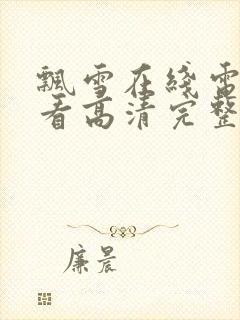 飘雪在线电
看高清完整
廉晨